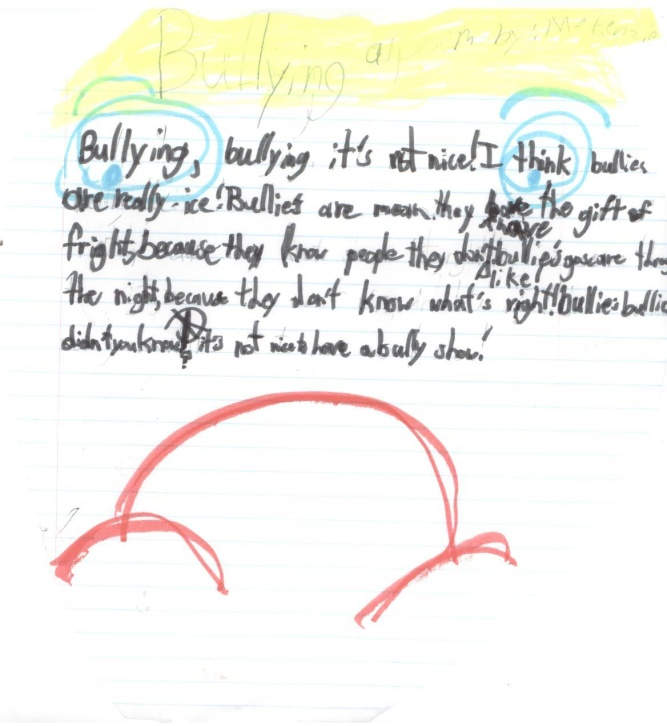 Bullying a poem by: Mckenzie
Bullying, bullying it's not nice! I think bullies
are really ice! Bullies are mean, they have the gift of
fright, because they know people they don't like! bullies
the night, because they don't know what's right! bullies
didn't you know? it's not nice to have a bully show!